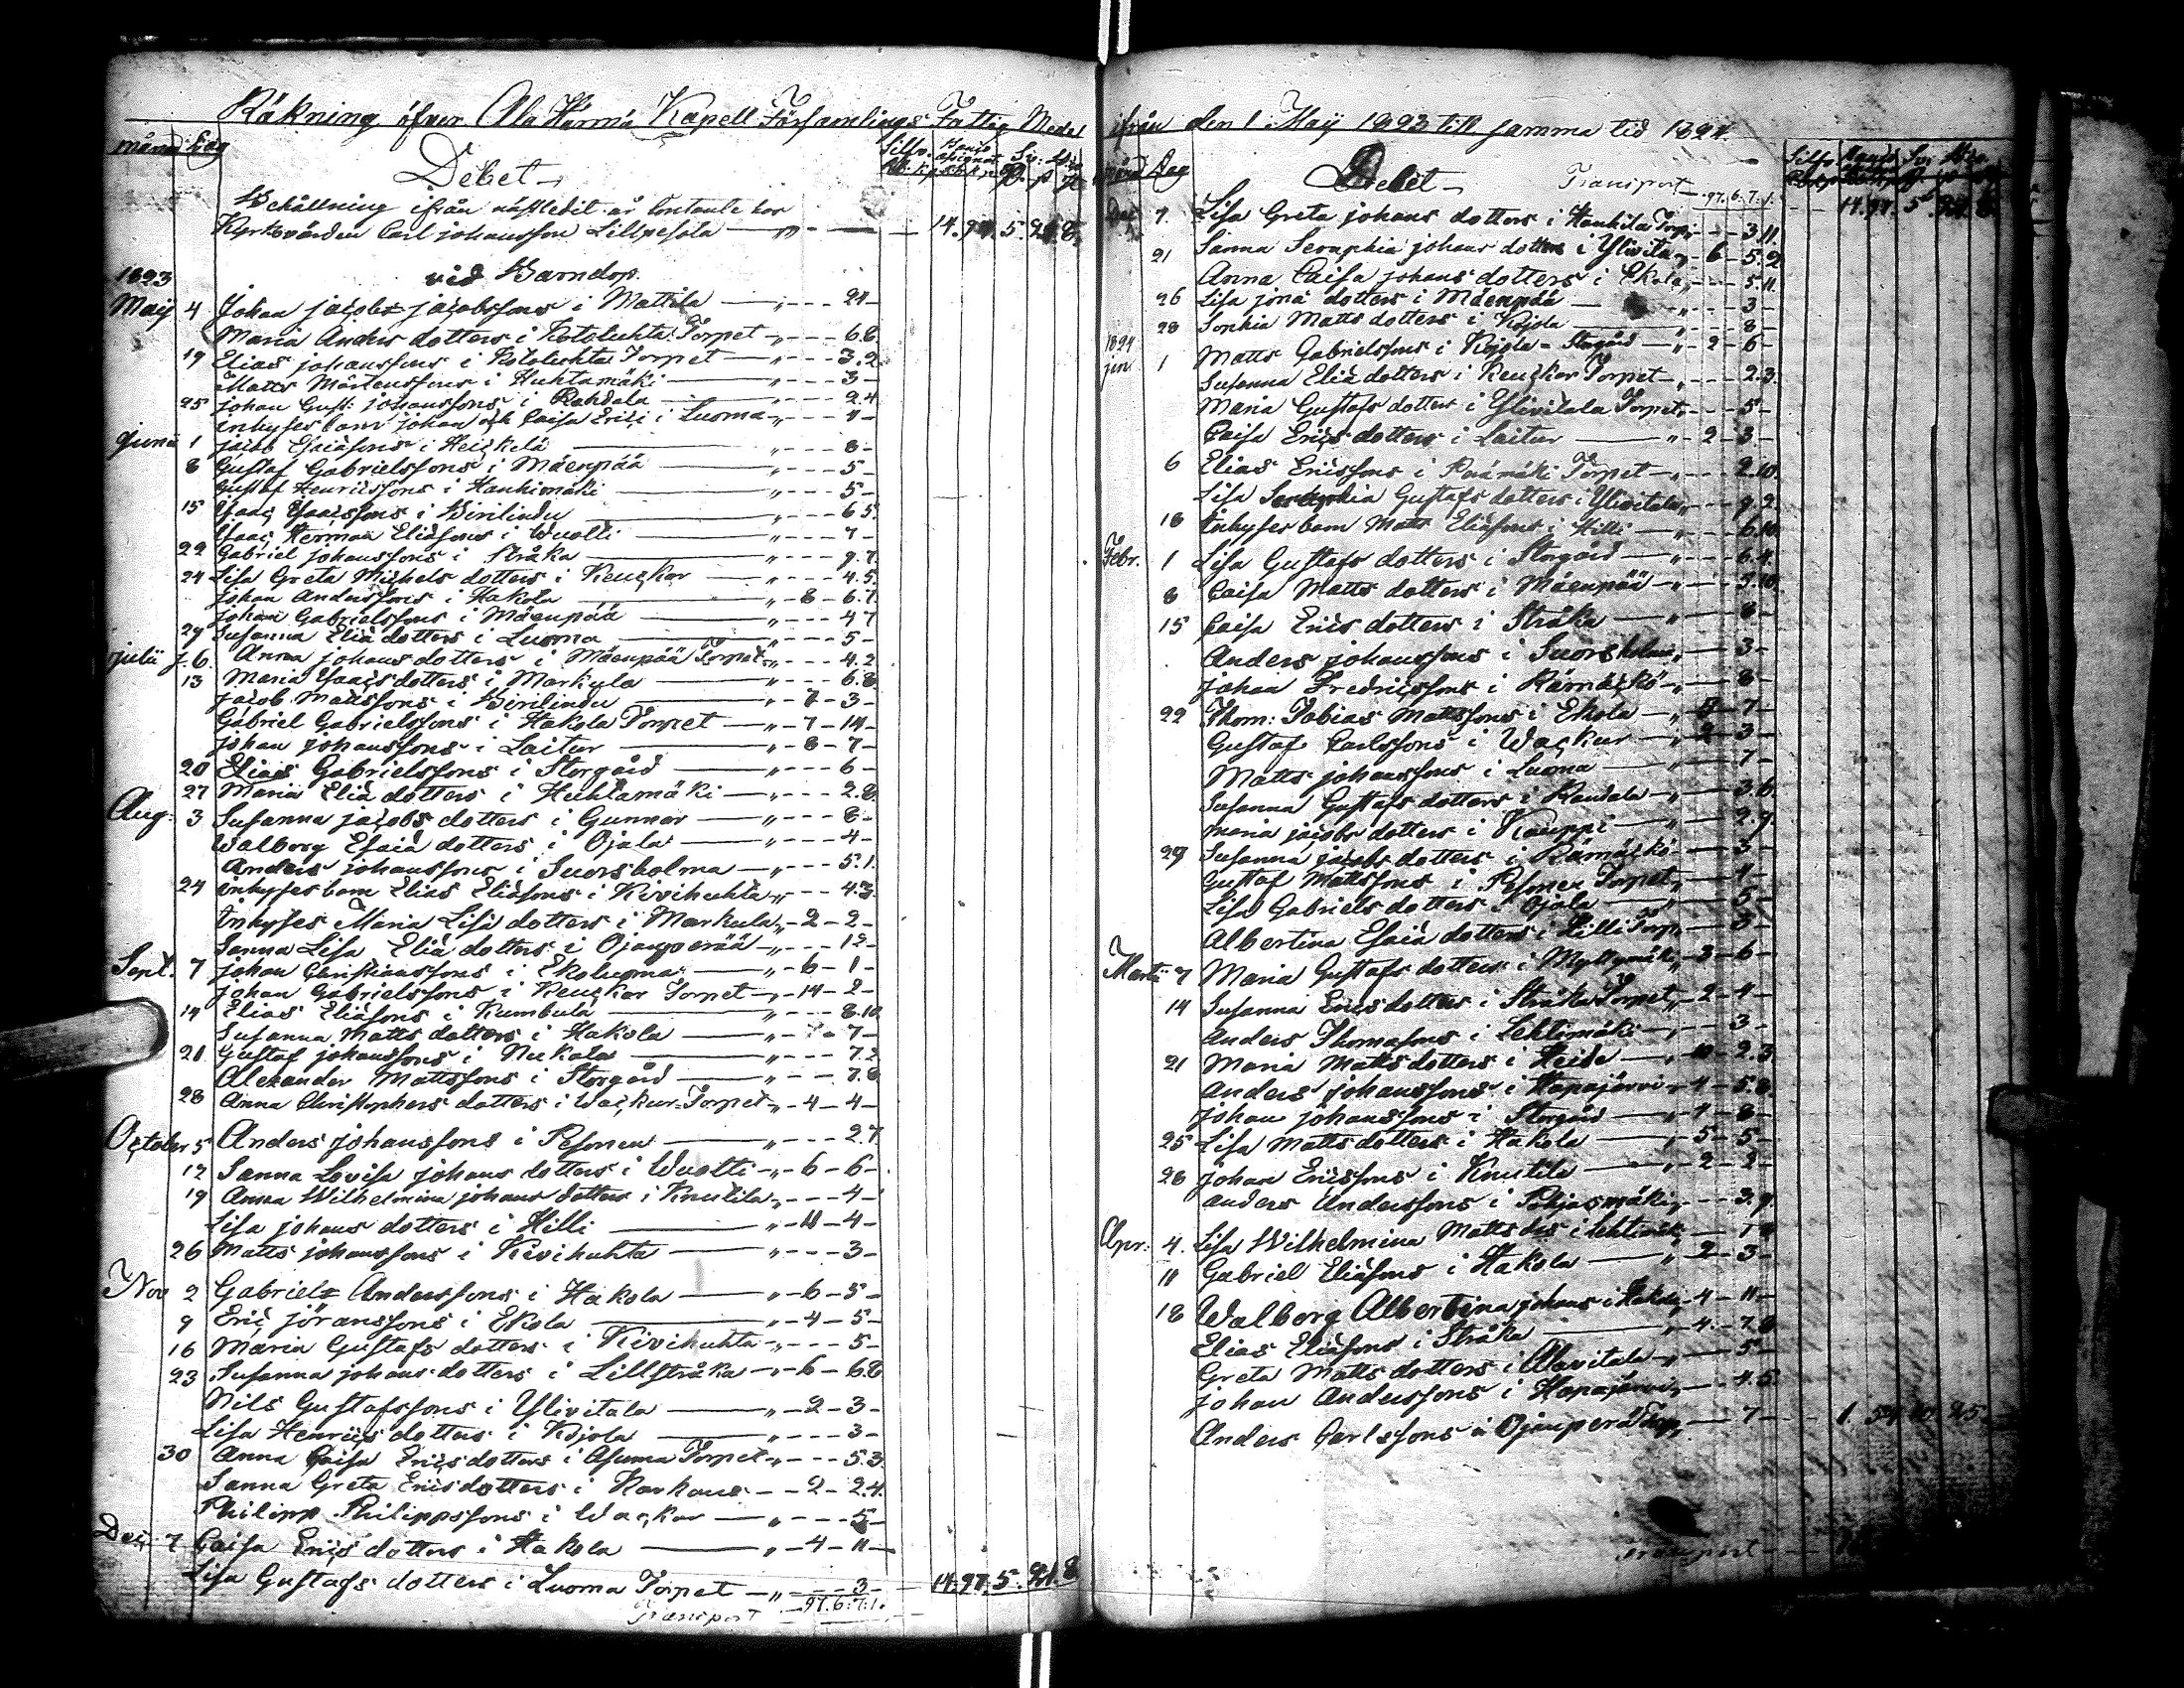 Räkning öfver Ala Härmä Kapell Församlings Fattig Medel
månad dag
Debet
Silfr. Banco Assignat. Sv:
Behållning ifrån nästledit år Contante hos
Kyrkovärden Carl johansson Lillpesola — 14. 97. 5. 21. 8.
vid Barndop.
1823
Maij 4 Johan jacobs jacobssons i Mattila — „ — — 21 —
Maria Anders dotters i Kotoluhta Torpet „ — — — 6.8
19 Elias johanssons i Kotoluhta Torpet — „ — — — 3.2
Matts Mårtenssons i Huhtamäki — „ — — — 3 —
25 johan Gust: johanssons i Randala — „ — — — 2.4
inhyses barn johan och Caisa Erici i Luoma „ — — — 11 —
Junii 1 jacob Esaiæsons i Heickilä — „ — — — 8 —
8 Gustaf Gabrielssons i Mäenpää — „ — — — 5 —
Gustaf Henricssons i Hanhimäki — — — 5 —
15 Isaac Isaacssons i Birilindu — — — 6.5
Isaac Herman Eliæsons i Wuolli — „ — — — 7 —
22 Gabriel johanssons i Stråka — „ — — — 9.7
24 Lisa Greta Michels dotters i Keuckar — „ — — — 4.5
johan Anderssons i Hakola — „ — 8 — 6.7
johan Gabrielssons i Mäenpää — — — 4 7
29 Susanna Eliæ dotters i Luoma — „ — — — 5 —
julii d. 6. Anna johans dotters i Mäenpää Torpet „ — — — 4.2
13 Maria Isaacs dotters i Markula — „ — — — 6.8
jacob Mattssons i Birilindu — „ — 7 — 3 —
Gabriel Gabrielssons i Hakola Torpet — „ — 7 — 14 —
johan johanssons i Laitur — „ — 8 — 7 —
20 Elias Gabrielssons i Storgård — „ — — — 6 —
27 Maria Eliæ dotters i Huhtamäki — „ — — — 2.8
Aug: 3 Susanna jacobs dotters i Gunnar — „ — — — 8 —
Walborg Esaiæ dotters i Ojala — „ — — — 4 —
Anders johanssons i Suorsholma — „ — — — 5.1
24 inhyses barn Elias Eliæsons i Kivihuhta „ — — — 4.3
inhyses Maria Lisa dotters i Markula „ — 2 — 2 —
Sanna Lisa Eliæ dotters i Ojanperää „ — — — 12 —
Sept. 7 johan Christianssons i Ekoluoma — „ — 6 — 1 —
johan Gabrielssons i Keuckar Torpet „ — 14 — 2 —
14 Elias Eliæsons i Kumbula — „ — — — 8.10
Susanna Matts dotters i Hakola — „ — — 7 —
21 Gustaf johanssons i Nukala — „ — — — 7.2
Alexander Mattssons i Storgård — „ — — — 7.8
28 Anna Christophers dotters i Wackur Torpet „ — 4 — 4 —
October 5 Anders johanssons i Pesonen — „ — — — 2.7
12 Sanna Lovisa johans dotters i Wuolli „ — 6 — 6 —
19 Anna Wilhelmina johans dotters i Knutila „ — — — 4 —
Lisa johans dotters i Hilli — „ — 11 — 4 —
26 Matts johanssons i Kivihuhta — „ — — — 3 —
Nov 2 Gabriels Anderssons i Hakola — „ — 6 — 5 —
9 Eric jöranssons i Ekola — „ — 4 — 5 —
16 Maria Gustafs dotters i Kivihuhta „ — — — 5 —
23 Susanna johans dotters i Lillstråka „ — 6 — 6.8
Nils Gustafssons i Ylivitala — „ — 2 — 3 —
Lisa Henrics dotters i Kojola — „ — — — 3 —
30 Anna Caisa Erics dotters i Asuma Torpet „ — — — 5.3
Sanna Greta Erics dotters i Karhaus — — 2 — 2.4
Philipp Philippssons i Wackur — „ — — — 5 —
Dec: 7 Caisa Erics dotters i Hakola — „ — 4 — 11 —
Lisa Gustafs dotters i Luoma Torpet — „ — — — 3 — 14. 97. 5. 21. 8
Transport — 97. 6. 7. 1.
ifrån den 1 Maij 1823 till samma tid 1824.
månd Dag
Debet — Transport — 97. 6. 7. 1.
Silfr Banco Sv:
Dec 7. Lisa Greta johans dotters i Hanhila Torp „ — — 3.11. 14. 97. 5. 21. 8.
21 Sanna Seraphia johans dotters i Ylivitala „ 6 — 5.2
Anna Caisa johans dotters i Ekola „ — — 5.11.
26 Lisa jonæ dotters i Mäenpää — „ — — 3 —
28 Sophia Matts dotters i Kojola — „ — — 8 —
1824
jan 1 Matts Gabrielssons i Kojola - Storgård — „ — 2 — 6 —
Susanna Eliæ dotters i Keuckar Torpet — „ — — — 2.3.
Maria Gustafs dotters i Ylivitala Torpet „ — — 5 —
Caisa Erics dotters i Laitur — „ — 2 — 3 —
6 Elias Ericssons i Torpet — „ — — — 2.10.
Lisa Gustafs dotters i Ylivitala „ — — 9.2
18 Inhyses barn Matts Eliæsons i Hilli — „ — — 6.10.
Febr. 1 Lisa Gustafs dotters i Storgård — „ — — 6.4.
8 Caisa Matts dotters i Mäenpää „ — — 3.10.
15 Caisa Erics dotters i Stråka — „ — — 8 —
Anders johanssons i Suorsholma „ — 3 —
johan Fredricssons i Rämäckö „ — 8 —
22 Thom: Tobias Mattssons i Ekola — „ — 7 —
Gustaf Carlssons i Wackur — „ 2 — 3 —
Matts johanssons i Luoma — „ — 7 —
Susanna Gustafs dotters i Randala „ — 3.6.
Maria jacobs dotters i Kauppi — „ — 2.9.
29 Susanna jacobs dotters i Rämäckö — 3 —
Gustaf Mattssons i Pesonen Torpet — 4 —
Lisa Gabriels dotters i Ojala — 5 —
Albertina Esaiæ dotters i Hilli Torp „ — 3 —
Martii 7 Maria Gustafs dotters i Myllymäki „ 3 — 6 —
14 Susanna Erics dotters i Stråka Torpet „ — 2 — 4 —
Anders Thomæsons i Lehtimäki „ — — 3 —
21 Maria Matts dotters i Heide — „ 10 — 2.3
Anders johanssons i Hapajärvi „ 4 — 5.8.
johan johanssons i Storgård — „ 4 — 8 —
25 Lisa Matts dotters i Hakola — „ 5 — 5 —
28 johan Ericssons i Knutila — „ — 2 — 2 —
Anders Anderssons i Pohjasmäki „ — — 3.9.
Apr: 4. Lisa Wilhelmina Matts drs i Lehtimäki
11 Gabriel Eliæsons i Hakola — „ 2 — 3 —
18 Walborg Albertina johans i Hakola „ 4 — 11 —
Elias Eliæsons i Stråka — „ 4 — 7.8
Greta Matts dotters i Alavitala „ — 5 —
johan Anderssons i Hapajärvi „ — 4.5
Anders Carlssons i Ojanperä Torp „ — 7 — 1. 54. 10. 25.
Transport